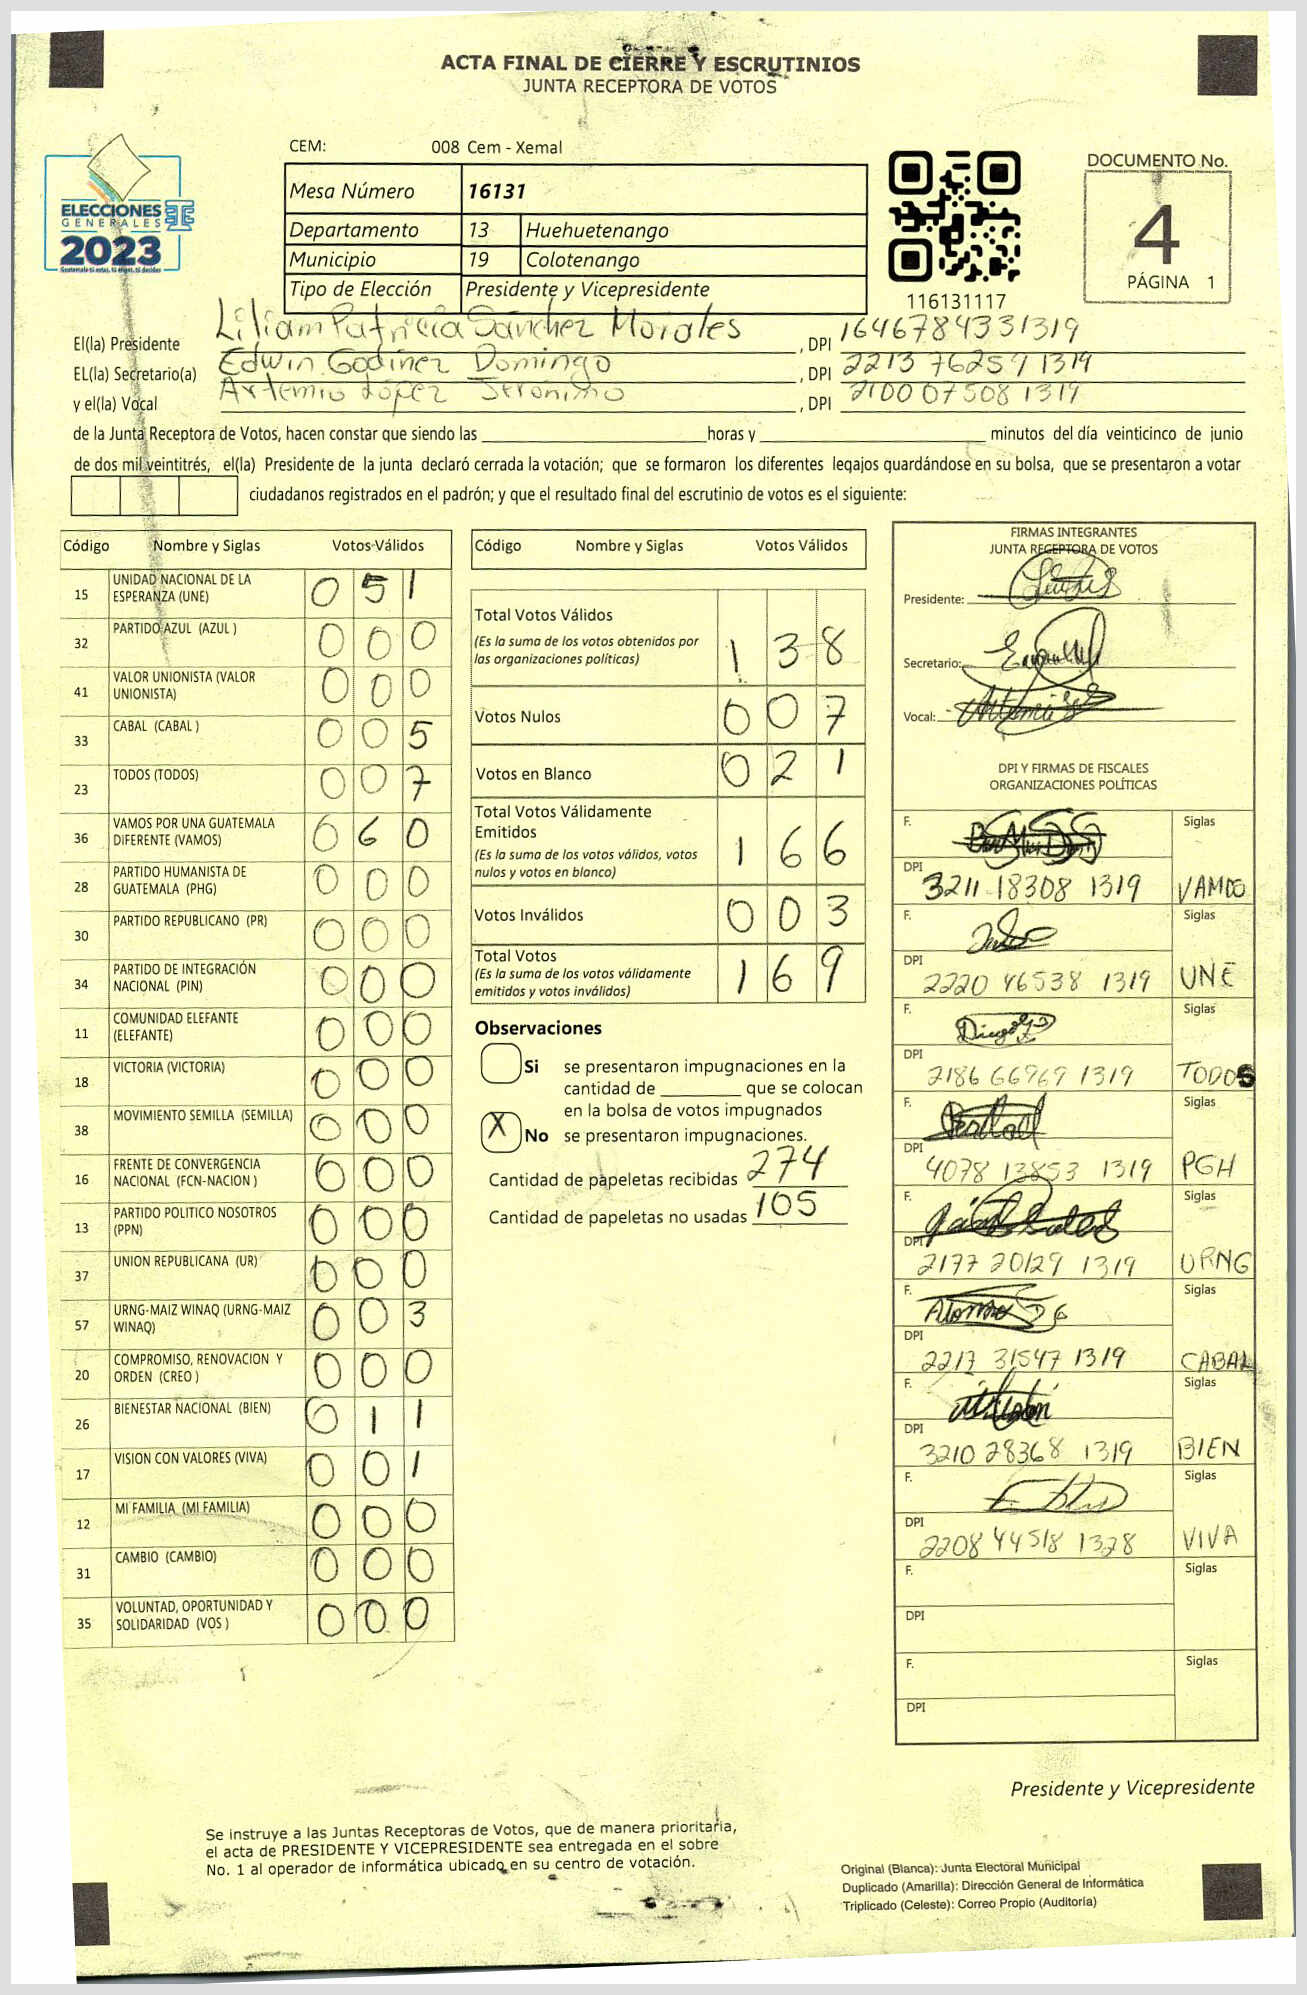 ACTA FINAL DE CIERRE Y ESCRUTINIOS
JUNTA RECEPTORA DE VOTOS
ELECCIONES
GENERALES
2023
CEM: 008 Cem - Xemal
Mesa Número 16131
Departamento 13 Huehuetenango
Municipio 19 Colotenango
Tipo de Elección Presidente y Vicepresidente
116131117
DOCUMENTO No.
4
PÁGINA 1
El(la) Presidente Liliam Patricia Sánchez Morales, DPI 1646784331319
EL(la) Secretario(a) Edwin Godínez Domingo, DPI 2213 76259 1319
y el(la) Vocal Artemio López Jerónimo, DPI 2100 07508 1319
de la Junta Receptora de Votos, hacen constar que siendo las horas y minutos del día veinticinco de junio
de dos mil veintitrés, el(la) Presidente de la junta declaró cerrada la votación; que se formaron los diferentes legajos guardándose en su bolsa, que se presentaron a votar
ciudadanos registrados en el padrón; y que el resultado final del escrutinio de votos es el siguiente:
Código Nombre y Siglas Votos Válidos
15 UNIDAD NACIONAL DE LA ESPERANZA (UNE) 051
32 PARTIDO AZUL (AZUL ) 000
41 VALOR UNIONISTA (VALOR UNIONISTA) 000
33 CABAL (CABAL ) 005
23 TODOS (TODOS) 007
36 VAMOS POR UNA GUATEMALA DIFERENTE (VAMOS) 060
28 PARTIDO HUMANISTA DE GUATEMALA (PHG) 000
30 PARTIDO REPUBLICANO (PR) 000
34 PARTIDO DE INTEGRACIÓN NACIONAL (PIN) 000
11 COMUNIDAD ELEFANTE (ELEFANTE) 000
18 VICTORIA (VICTORIA) 000
38 MOVIMIENTO SEMILLA (SEMILLA) 000
16 FRENTE DE CONVERGENCIA NACIONAL (FCN-NACION ) 000
13 PARTIDO POLITICO NOSOTROS (PPN) 000
37 UNION REPUBLICANA (UR) 000
57 URNG-MAIZ WINAQ (URNG-MAIZ WINAQ) 003
20 COMPROMISO, RENOVACION Y ORDEN (CREO ) 000
26 BIENESTAR NACIONAL (BIEN) 011
17 VISION CON VALORES (VIVA) 001
12 MI FAMILIA (MI FAMILIA) 000
31 CAMBIO (CAMBIO) 000
35 VOLUNTAD, OPORTUNIDAD Y SOLIDARIDAD (VOS ) 000
Código Nombre y Siglas Votos Válidos
Total Votos Válidos 138
(Es la suma de los votos obtenidos por
las organizaciones políticas)
Votos Nulos 007
Votos en Blanco 021
Total Votos Válidamente
Emitidos 166
(Es la suma de los votos válidos, votos
nulos y votos en blanco)
Votos Inválidos 003
Total Votos 169
(Es la suma de los votos válidamente
emitidos y votos inválidos)
Observaciones
Si se presentaron impugnaciones en la
cantidad de que se colocan
en la bolsa de votos impugnados
X No se presentaron impugnaciones.
Cantidad de papeletas recibidas 274
Cantidad de papeletas no usadas 105
FIRMAS INTEGRANTES
JUNTA RECEPTORA DE VOTOS
Presidente:
Secretario:
Vocal:
DPI Y FIRMAS DE FISCALES
ORGANIZACIONES POLÍTICAS
F. Siglas
DPI 3211 18308 1319 VAMOS
F. Siglas
DPI 2220 46538 1319 UNE
F. Siglas
DPI 2186 66969 1319 TODOS
F. Siglas
DPI 4078 13853 1319 PGH
F. Siglas
DPI 2177 20129 1319 URNG
F. Siglas
DPI 2217 31547 1319 CABAL
F. Siglas
DPI 3210 28368 1319 BIEN
F. Siglas
DPI 2208 44518 1328 VIVA
F. Siglas
DPI
F. Siglas
DPI
Presidente y Vicepresidente
Se instruye a las Juntas Receptoras de Votos, que de manera prioritaria,
el acta de PRESIDENTE Y VICEPRESIDENTE sea entregada en el sobre
No. 1 al operador de informática ubicado en su centro de votación.
Original (Blanca): Junta Electoral Municipal
Duplicado (Amarilla): Dirección General de Informática
Triplicado (Celeste): Correo Propio (Auditoría)